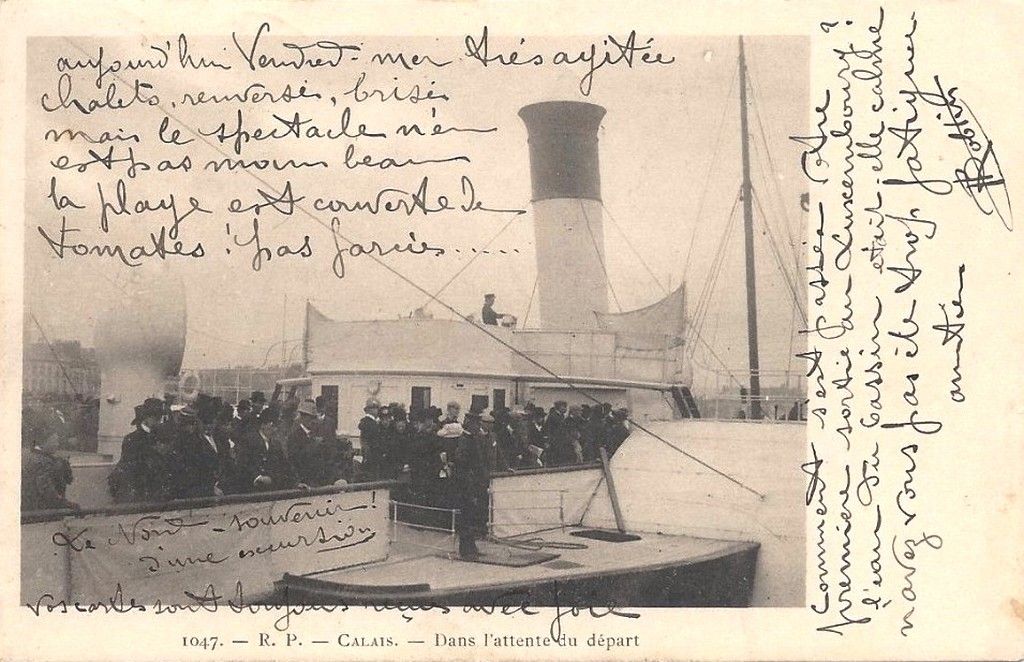 aujourd'hui Vendred- mer très agitée
chalets, renversés, brisés
mais le spectacle n'en
est pas moins beau
la plage est couverte de
tomates ! pas farcies......
Le Nord - souvenir !
d'une excursion
vos cartes sont toujours reçues avec joie
1047. — R. P. — CALAIS. — Dans l'attente du départ
Comment s'est passée votre
première sortie au Luxembourg?
l'eau du bassin était-elle calme
n'avez vous pas été trop fatiguée
amitiés